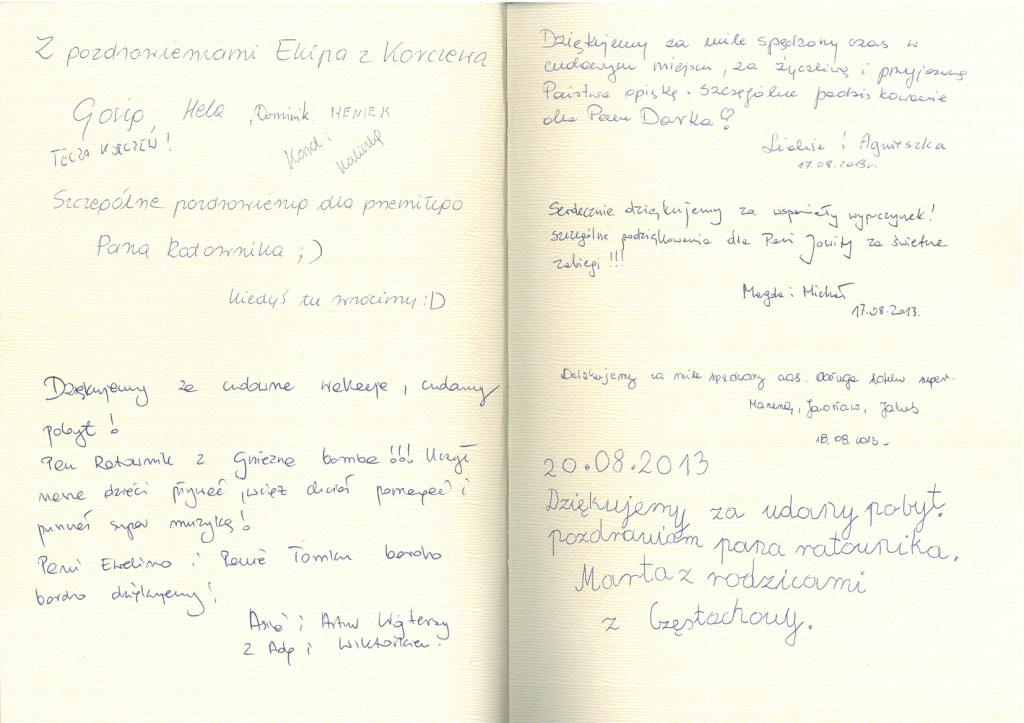 Z pozdrowieniami Ekipa z Korczewa
Gosia, Hela, Dominik HENIEK
TĘCZA KORCZEW!
Szczególne pozdrowienia dla przemiłego
Pana Ratownika ;)
Kiedyś tu wrócimy :D
Dziękujemy za cudowne wakacje, cudowny
pobyt!
Pan Ratownik z Gniezna bomba!!! Uczył
nasze dzieci pływać, wciąż chciał pomagać i
puszczał super muzykę!
Pani Ewelino i Panie Tomku bardzo
bardzo dziękujemy!
Asia i Artur
z Adą i Wiktorkiem.
Dziękujemy za miłe spędzony czas w
cudownym miejscu, za życzliwą i przyjazną
Państwa opiekę. Szczególne podziękowanie
dla Pana Darka
Lidia i Agnieszka
17.08.2013r.
Serdecznie dziękujemy za wspaniały wypoczynek!
szczególne podziękowania dla Pani Jowity za świetne
zabiegi!!!
Magda i Michał
17.08.2013.
Dziękujemy za mile spędzony czas. Obsługa hotelu super.
Marzena, Jarosław, Jakub
18.08.2013.
20.08.2013
Dziękujemy za udany pobyt.
pozdrawiam pana ratownika.
Marta z rodzicami
z Częstochowy.